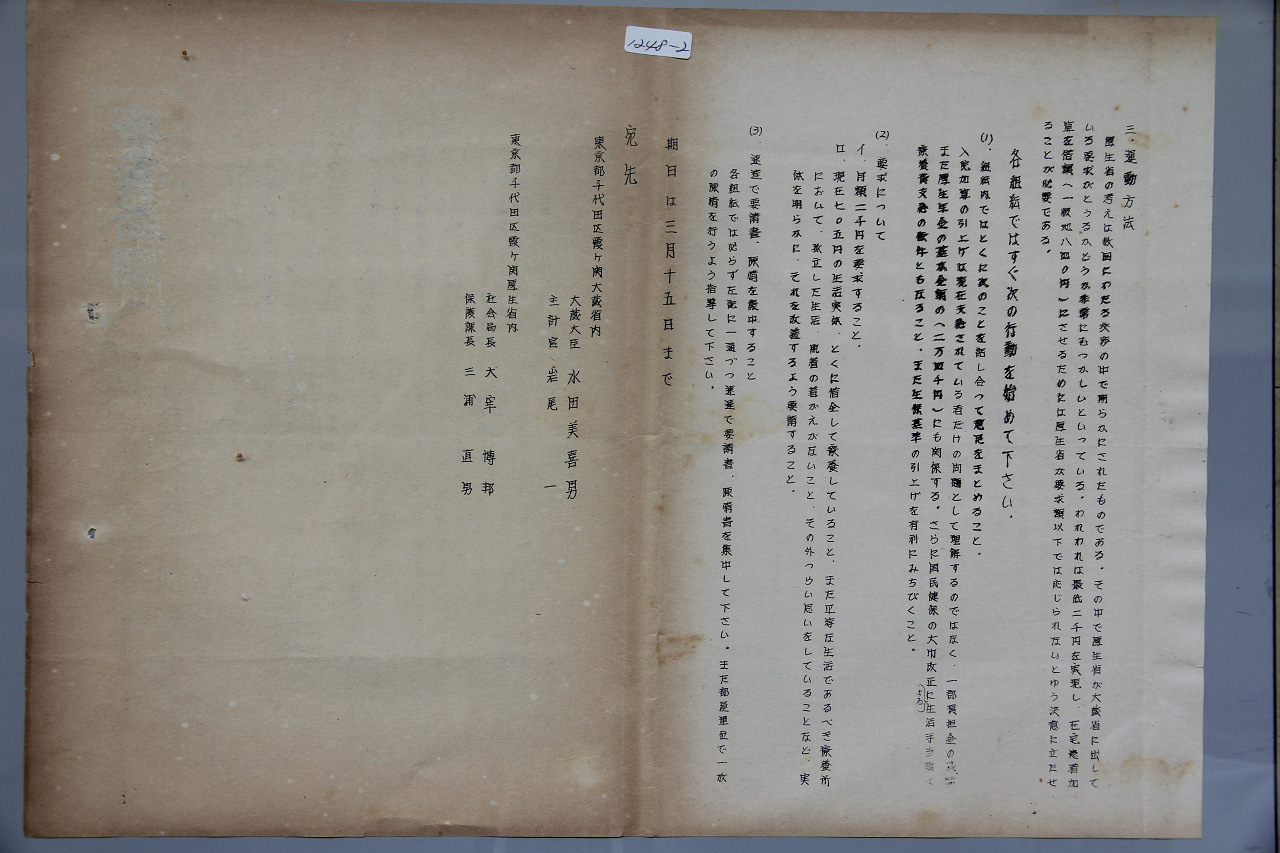 1248-2
三、運動方法
厚生省の考えは数回にわたる交渉の中で明らかにされたものである。その中で厚生省が大蔵省に出して
いる要求がとうるかどうか非常にむつかしいといっている。われわれは最低二千円を実現し、在宅患者加
算を倍額(一級地八四〇円)にさせるためには厚生省の要求額以下では応じられないとゆう決意に立たせ
ることが必要である。
各組織ではすぐ次の行動を始めて下さい。
(1)、組織内ではとくに次のことを話し合って意見をまとめること。
入院加算の引上げは現在支給されている者だけの問題として理解するのではなく、一部負担金の
また厚生年金の基本金額の(二万四千円)にも関係する。さらに国民健保の大巾改正に(よる)生活手当
療養費支給の条件ともなること。また生保基準の引上げを有利にみちびくこと。
(2)、要求について
イ、月額二千円を要求すること。
ロ、現在七〇五円の生活実体、とくに借金して療養していること、また平等な生活であるべき療養所
において、孤立した生活、肌着の着がえがないこと、その外つらい思いをしていることなど、実
体を明らかに、それを改善するよう要請すること。
(3)、速達で要請書、陳情を集中すること
各組織では必らず左記に一通づつ速達で要請書、陳情書を集中して下さい。また都道単位で一次
の陳情を行うよう指導して下さい。
期日は三月十五日まで
宛先
東京都千代田区霞ヶ関大蔵省内
大蔵大臣 水田美喜男
主計官 岩尾 一
東京都千代田区霞ヶ関厚生省内
社会局長 大宰 博邦
保護課長 三浦 直男